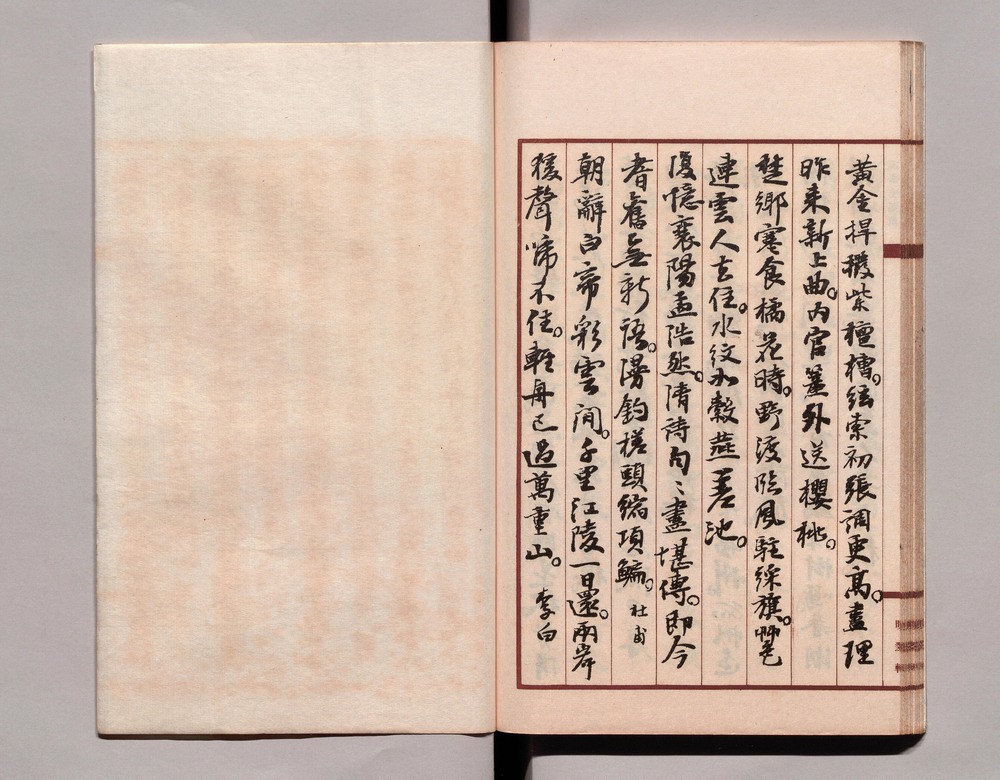 黃金捍撥紫檀槽。絃索初張調更高。盡理
昨來新上曲。內官簾外送櫻桃。
楚鄉寒食橘花時。野渡臨風駐綵旗。艸色
連雲人去住。水紋如縠燕差池。
復憶襄陽孟浩然。清詩句〻盡堪傳。即今
耆舊無新語。漫釣槎頭縮項鯿。杜甫
朝辭白帝彩雲間。千里江陵一日還。兩岸
猨聲啼不住。輕舟已過萬重山。李白